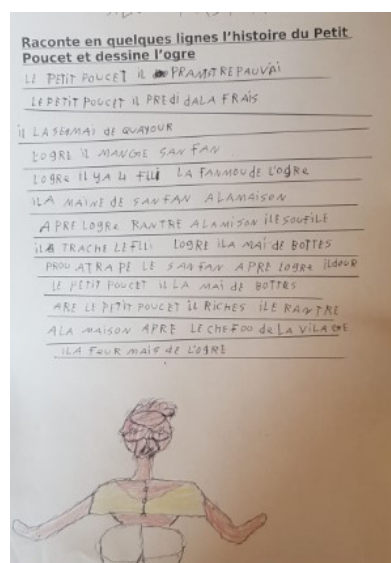 Raconte en quelques lignes l'histoire du Petit
Poucet et dessine l'ogre
LE PETIT POUCET IL PRAMSTREPAUVAI
LEPETIT POUCET IL PREDI DALA FRAIS
iL LASEMAI DE QUAYOUR
L'OGRE iL MANGE SAN FAN
LOGRE iL YA 4 FLLI LA FANMOUDE L'OGRE
iLA MAINE DE SANFAN ALAMAISON
APRE LOGRE RANTRE ALAMISON iLESOUFILE
iLA TRACHE LEFLLI LOGRE ILA MAI DE BOTTES
PROU ATRAPE LE SANFAN APRE LOGRE iLDOUR
LE PETIT POUCET iLLA MAI DE BOTTES
ARE LE PETIT POUCET iL RICHES iLE RANTRE
ALA MAISON APRE LECHEFOO de LA ViLAGE
iLA FEUR MAIS DE L'OGRE